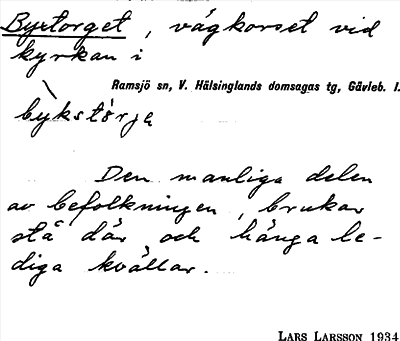 Byxtorget, vägkorset vid
kyrkan i
Ramsjö sn, V. Hälsinglands domsagas tg, Gävleb. l.
býkstòrjə
Den manliga delen
av befolkningen, brukar
stå där och hänga le-
diga kvällar.
LARS LARSSON 1934